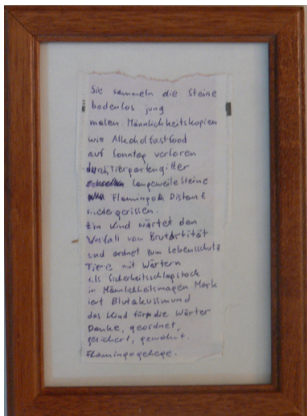 Sie sammeln die Steine
bodenlos jung
malen Männlichkeitskopien
wie Alkoholfastfood
auf Sonntag verloren
Tiergartengitter
Langeweilesteine
Flamingos Distanz
niedergerissen.
Ein Kind wartet den
Unfall von Brutalität
und ordnet zum Lebensschutz
Tiere mit Wärtern
als Sicherheitsschlagstock
in Männlichkeitsmagen Mark
iert
das Kind für die Wärter
Danke, geordnet,
gesichert, gewohnt.
Flamingogelege.